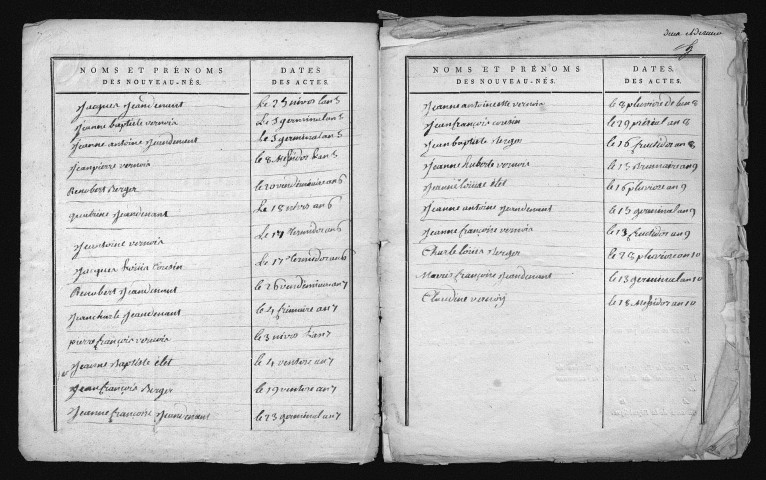 NOMS ET PRÉNOMS DES NOUVEAU-NÉS. DATES DES ACTES.
Jacques Jeandenant le 25 nivos lan 5
Jeanne baptiste vernoix le 5 germinal an 5
Jeanne antoine Jeandenant le 5 germinal an 5
Jeanpierre vernoix le 8 Messidor lan 5
Renobert Berger le 20 vendémiaire an 6
Jeandenant le 18 nivos an 6
Jeantoine vernoix le 17 termidor an 6
Jacques louis Cousin le 17 termidor an 6
Renobert Jeandenant le 26 vendémiaire an 7
Jeancharle Jeandenant le 4 frimaire an 7
pierre françois vernoix le 3 nivos lan 7
Jeanne Baptiste élet le 4 ventose an 7
Jean françois Berger le 19 ventose an 7
Jeanne francoise Jeandenant le 23 germinal an 7
NOMS ET PRÉNOMS DES NOUVEAU-NÉS. DATES DES ACTES.
Jeanne antoinette vernoix le 8 pluviose de lan 8
Jean françois cousin le 29 prérial an 8
Jean baptiste Berger le 16 fructidor an 8
Jeanne huberte vernoix le 15 Brumaire an 9
Jeanne louise élet le 16 pluvios an 9
Jeanne antoine Jeandenant le 15 germinal an 9
Jeanne françoise vernoix le 13 fructidor an 9
Charle louis Berger le 28 pluviose an 10
Marie françoise Jeandenant le 13 germinal an 10
Claudine vernoix le 18 Messidor an 10